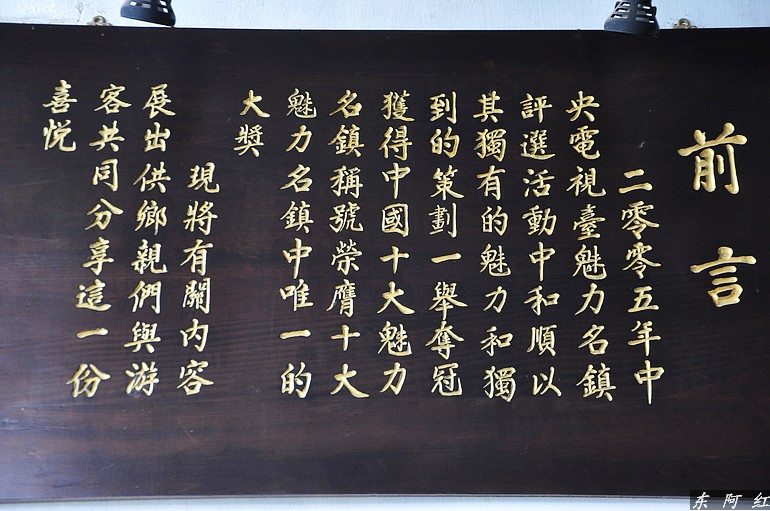 前言
二零零五年中
央電視臺魅力名鎮
評選活動中和順以
其獨有的魅力和獨
到的策劃一舉奪冠
獲得中國十大魅力
名鎮稱號榮膺十大
魅力名鎮中唯一的
大獎
現將有關內容
展出供鄉親們與游
客共同分享這一份
喜悅
东阿红